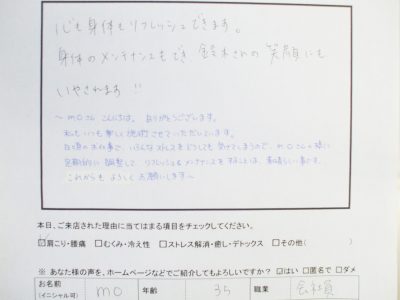 心も身体もリフレッシュできます。
身体のメンテナンスもでき 鈴木さんの 笑顔にも
いやされます!!
~ moさん こんにちは。 ありがとうございます。
私もいつも楽しく施術させていただいています。
日頃のお仕事で、いろんなストレスをどうしても受けてしまうので、moさんの様に
定期的に調整して、リフレッシュ&メンテナンスをすることは、素晴らしい事です。
これからもよろしくお願いします~
本日、ご来店された理由に当てはまる項目をチェックしてください。
☑肩こり・腰痛 □むくみ・冷え性 □ストレス解消・癒し・デトックス □その他( )
※ あなた様の声を、ホームページなどでご紹介してもよろしいですか? ☑はい □匿名で □ダメ
お名前 (イニシャル可) mo 年齢 35 職業 会社員